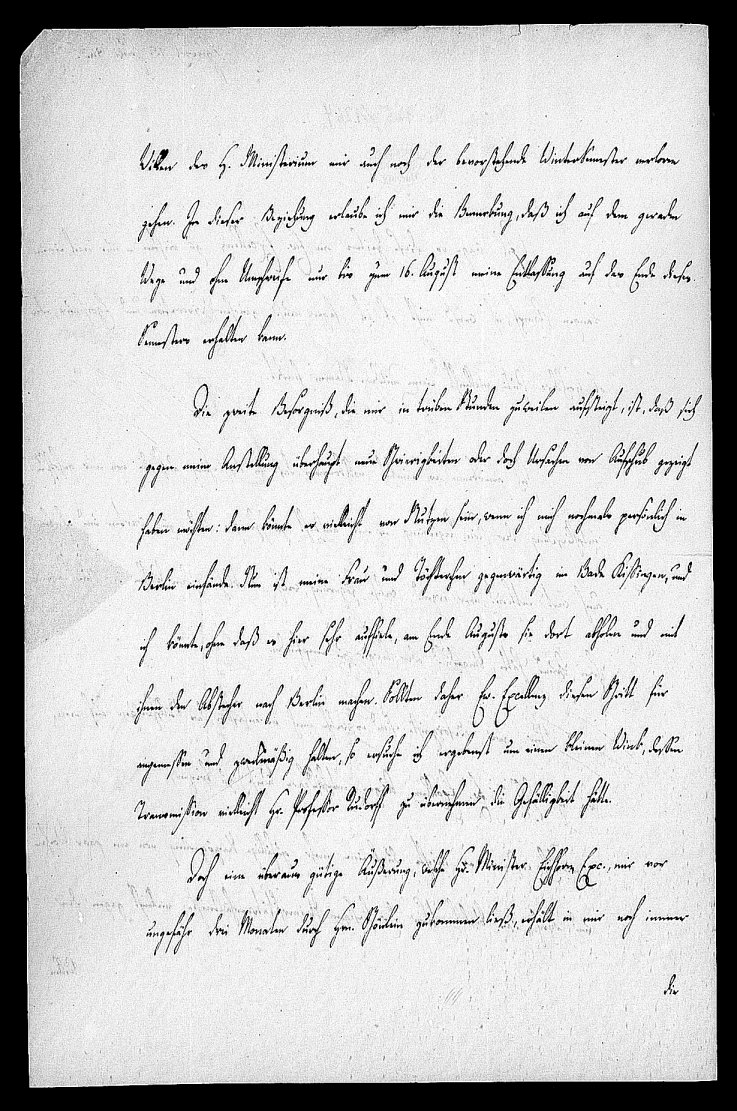 Willen des H. Ministerium mir auch noch der bevorstehende Wintersemester verloren
gehen. In dieser Beziehung erlaube ich mir die Bemerkung, daß ich auf dem geraden
Wege und ohne Umschweife nur bis zum 16. August meine Entlassung auf das Ende dieses
Semesters erhalten kann.
Die zweite Besorgniß, die mir in trüben Stunden zuweilen aufsteigt, ist, daß sich
gegen meine Anstellung überhaupt neue Schwierigkeiten oder doch Ursachen von Aufschub gezeigt
haben möchten: dann könnte es vielleicht von Nutzen sein, wenn ich mich nochmals persönlich in
Berlin einfände. Nun ist meine Frau und Töchterchen gegenwärtig im Bade Kissingen, und
ich könnte, ohne daß es hier sehr auffiele, am Ende Augusts sie dort abholen und mit
ihnen den Abstecher nach Berlin machen. Sollten daher Ew. Excellenz diesen Schritt für
angemessen und zweckmäßig halten, so ersuche ich ergebenst um einen kleinen Wink, dessen
Transmission vielleicht Hr. Professor Rudorff zu übernehmen die Gefälligkeit hätte.
Doch eine überaus gütige Äußerung, welche Hr. Minister Eichhorn Exc., mir vor
ungefähr drei Monaten durch Hrn. Schönlein zukommen ließ, erhält in mir noch immer
die